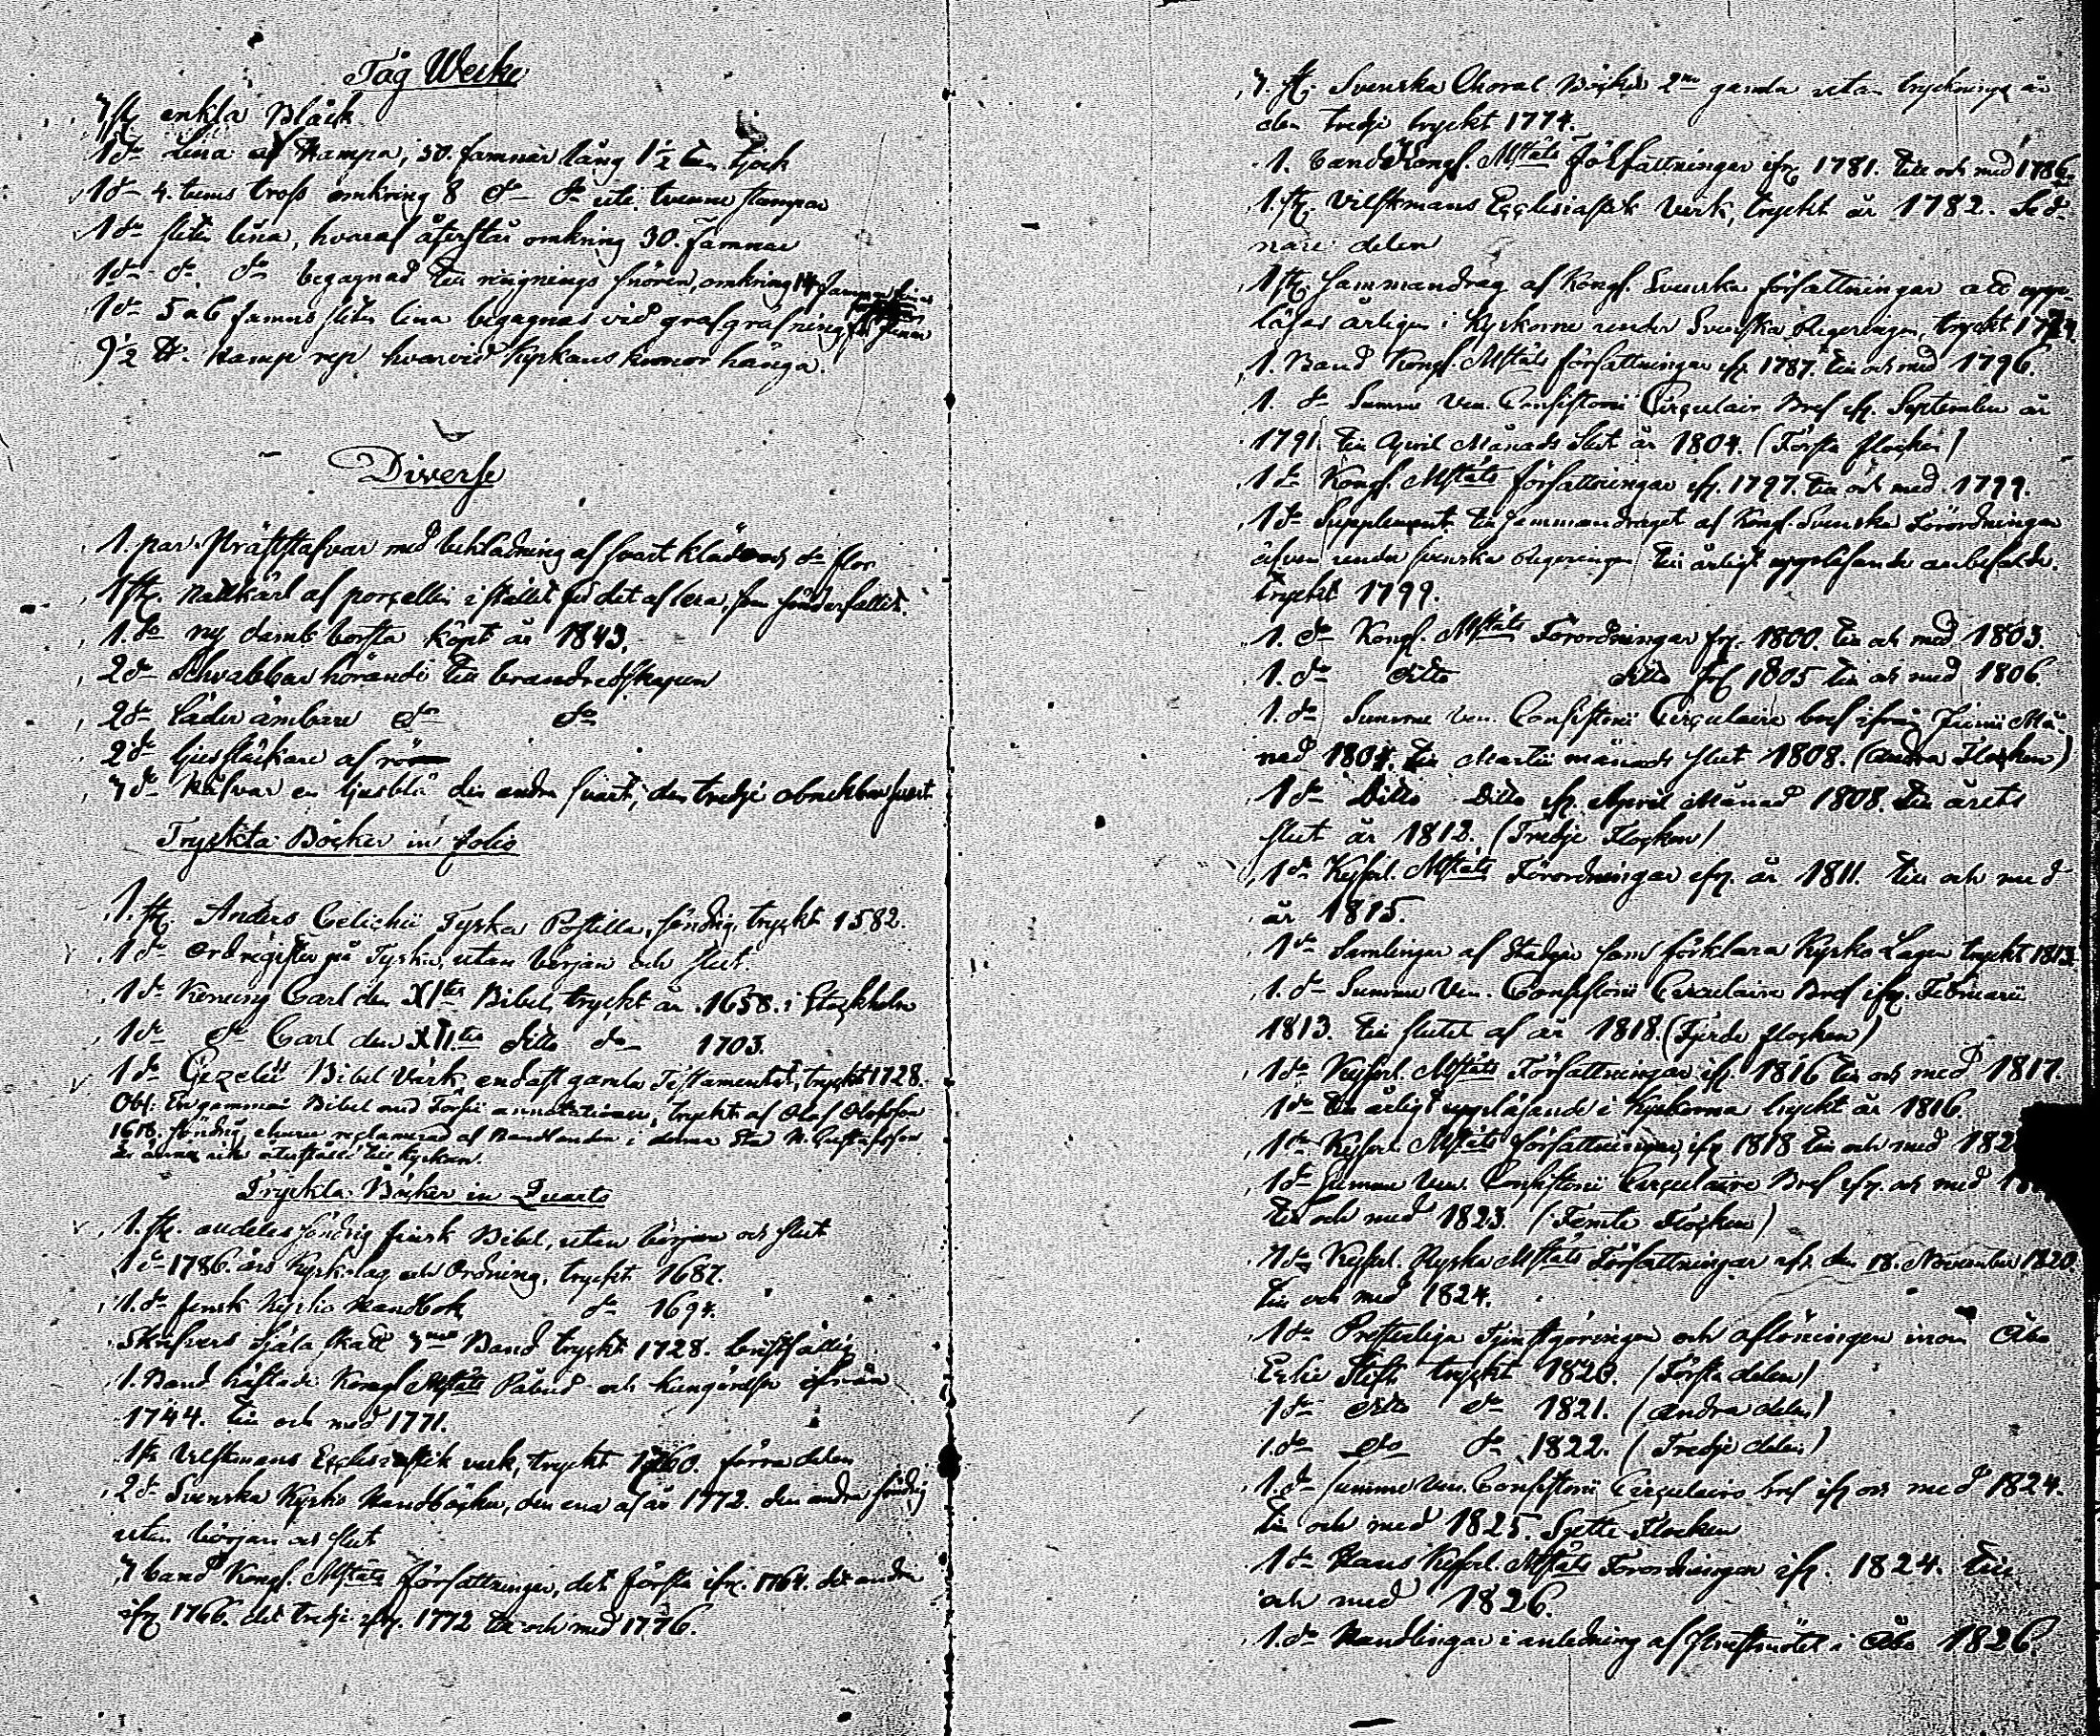 Tåg Werke
3 st. enkla Bläck
1 do Lina af Hampa, 30. famnar lång 1 1/2 tum tjock
1 do 4. tums tross omkring 8 do do uti tvenne stampar
1 do sliten lina, hvaraf återstår omkring 30. famnar
1 do do do begagnad till ringnings snören, omkring 14 famnar
1 do 5 a 6 famns sliten lina begagnas vid grafgräfning
9 1/2 ℔. Hamp rep hvarvid Kyrkans kronor hänga.
Diverse
1. par Präststafvar med beklädning af svart kläde och do flor
1 st. Nattkärl af porcellin i stället för det af lera, som sönderfallit.
1. do ny damb borsta köpt år 1843.
2 do Schvabbar hörande till brandredskapen
2 do läder ämbare do do
2 do ljussläckare af
3 do Håfvar en ljusblå den andra svart, den tredje obrukbar svart
Tryckta Böcker in folio
1. st. Anders Celichii Tyska Postilla, söndrig, tryckt 1582.
1 do Ordregister på Tyska, utan början och slut.
1 do Konung Carl den XI:tes Bibel, tryckt år 1658. i Stockholm
1 do do Carl den XII.tes ditto do 1703.
1 do Gezelii Bibel Värk, endast gamla Testamentet, tryckt 1728.
Obs. En gammal Bibel med Försii annotationer, tryckt af Olof Olofsson
1618. söndrig, ehuru reglamerad af Handlanden i denna Stad N. Gustafsson
är ännu icke återställd till Kyrkan.
Tryckta Böcker in Quarto
1. st. aldeles söndrig finsk Bibel, utan början och slut
1 do 1786. års Kyrkolag och Ordning, tryckt 1687.
1. do finsk Kyrko Handbok do 1694.
Skrifvers Själa Skatt 3ne Band tryckt 1728. bristfällig
1. Band häftade Kongl. Mjstäts Påbud och kungörelser ifrån
1744. till och med 1771.
1 st. Vilskmans Ecclesiastik verk, tryckt 1760. förra delen
2 do Svenska Kyrko Handböcker, den ena af år 1772. den andra söndrig
utan början och slut
3 band Kongl. Mjstäts författningar, det första ifr. 1764. det andra
ifr. 1766. det tredje ifr. 1772 till och med 1776.
3. st. Svenska Choral Böcker 2ne gamla utan tryckningsår
den tredje tryckt 1774.
1. band Kongl. Mjstäts Författningar ifr. 1781. till och med 1786.
1. st. Vilskmans Ecclesiastik Verk, tryckt år 1782. Sed-
nare delen
1 st. Sammandrag af Kongl. Svenska författningar att upp-
läsas årligen i Kyrkorne under Svenska Regeringen, tryckt
1. Band Kongl. Mjstäts författningar ifr. 1787. till och med 1796.
1. do Summe Ven. Consistorii Circulair Bref ifr. September år
1791. till April Månads slut år 1804. (Första flocken)
1 do Kongl. Mjstäts författningar ifr. 1797. till och med 1799.
1 do Supplement till Sammandraget af Kongl. Svenska Förordningar
äfven under Svenska Regeringen till årligt uppläsande anbefalde.
tryckt 1799.
1. do Kongl. Mjstäts Förordningar fr. 1800. till och med 1803.
1. do ditto ditto fr. 1805 till och med 1806.
1. do Summe Ven. Consistorii Circulaire bref ifrån Junii Må-
nad 1804. till Martii månads slut 1808. (andra Flocken)
1 do Ditto Ditto ifr. April Månad 1808. till årets
slut år 1812. (Tredje Flocken)
1 do Kejserl. Mjstäts Förordningar ifr. år 1811. till och med
år 1815.
1 do Samlingar af Stadgar som förklara Kyrko Lagen tryckt 1813.
1. do Summe Ven. Consistorii Circulaire Bref ifr. Februarii
1813. till slutet af år 1818. (Fjerde flocken)
1 do Kejserl. Mjstäts Författningar ifr. 1816 till och med 1817.
1 do till årligt uppläsande i Kyrkorna tryckt år 1816.
1 do Kejserl. Mjstäts författningar, ifr. 1818 till och med
1 do Summe Ven. Consistorii Circulaire Bref ifr. och med
till och med 1823. (Femte Flocken)
1 do Kejserl. Ryska Mjstäts Författningar ifr. den 18. November 1820.
till och med 1824.
1 do Presterliga Tjenstgöringen och aflöningen inom Åbo
Erkie Stift tryckt 1820. (Första delen)
1 do ditto do 1821. (andra delen)
1. do do do 1822. (Tredje delen)
1. do Summe Ven. Consistorii Circulaire bref ifr. och med 1824.
till och med 1825. Sjette Flocken
1 do Hans Kejserl. Mjstäts Förordningar ifr. 1824. till
och med 1826.
1. do Handlingar i anledning af Prestmötet i Åbo 1826.